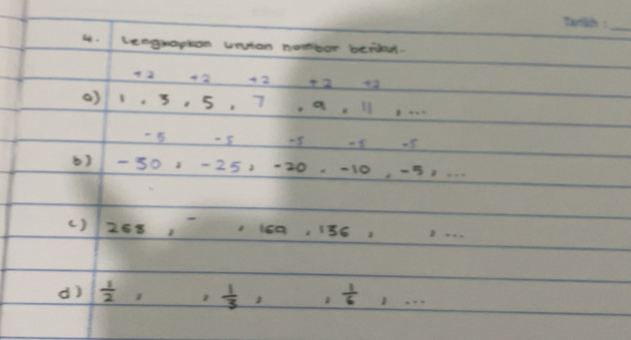 Tarikh :
4. Lengkapkan urutan nombor berikut.
+2 +2 +2 +2 +2
a) 1, 3, 5, 7, 9, 11, ...
-5 -5 -5 -5 -5
b) -30, -25, -20, -10, -5, ...
c) 268, , 169, 136, , ...
d) 1/2, , 1/3, , 1/6, ...